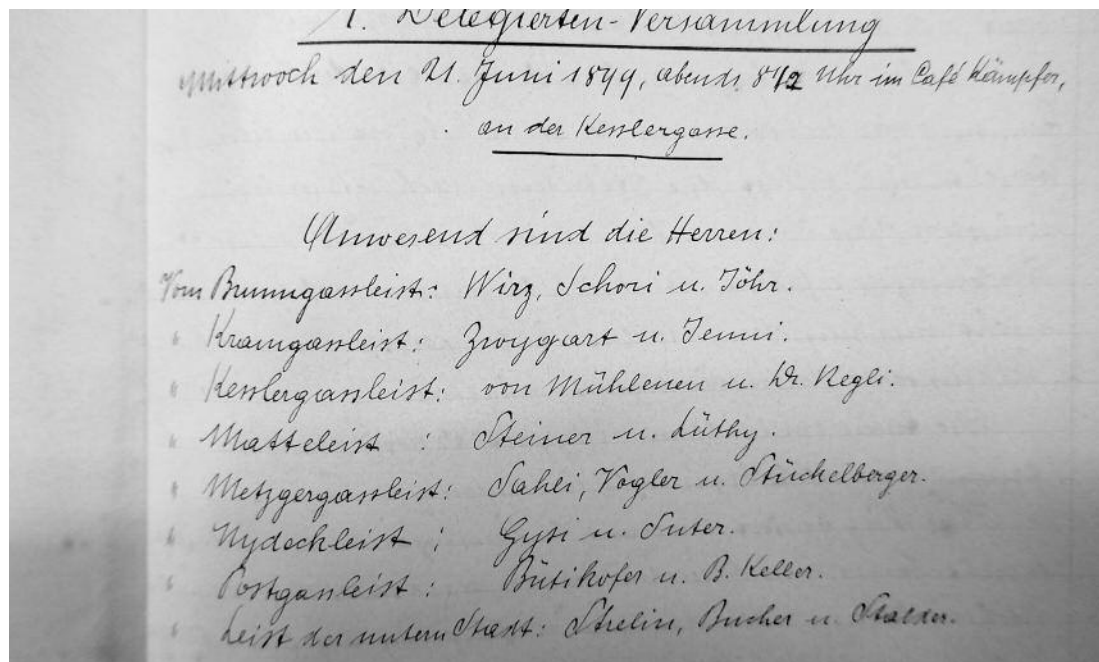 1. Delegierten-Versammlung
Mittwoch den 21. Juni 1899, abends 8 1/2 Uhr im Café Kämpfer,
an der Kesslergasse.
Anwesend sind die Herren:
Vom Brunngassleist: Wirz, Schori u. Jöhr.
" Kramgassleist: Zwygart u. Jenni.
" Kesslergassleist: von Mühlenen u. Dr. Regli.
" Matteleist : Steiner u. Lüthy.
" Metzgergassleist: Sahli, Vogler u. Stückelberger.
" Nydeckleist : Gysi u. Suter.
" Postgassleist : Bütikofer u. B. Keller.
" Leist der untern Stadt: Strelin, Bucher u. Stalder.